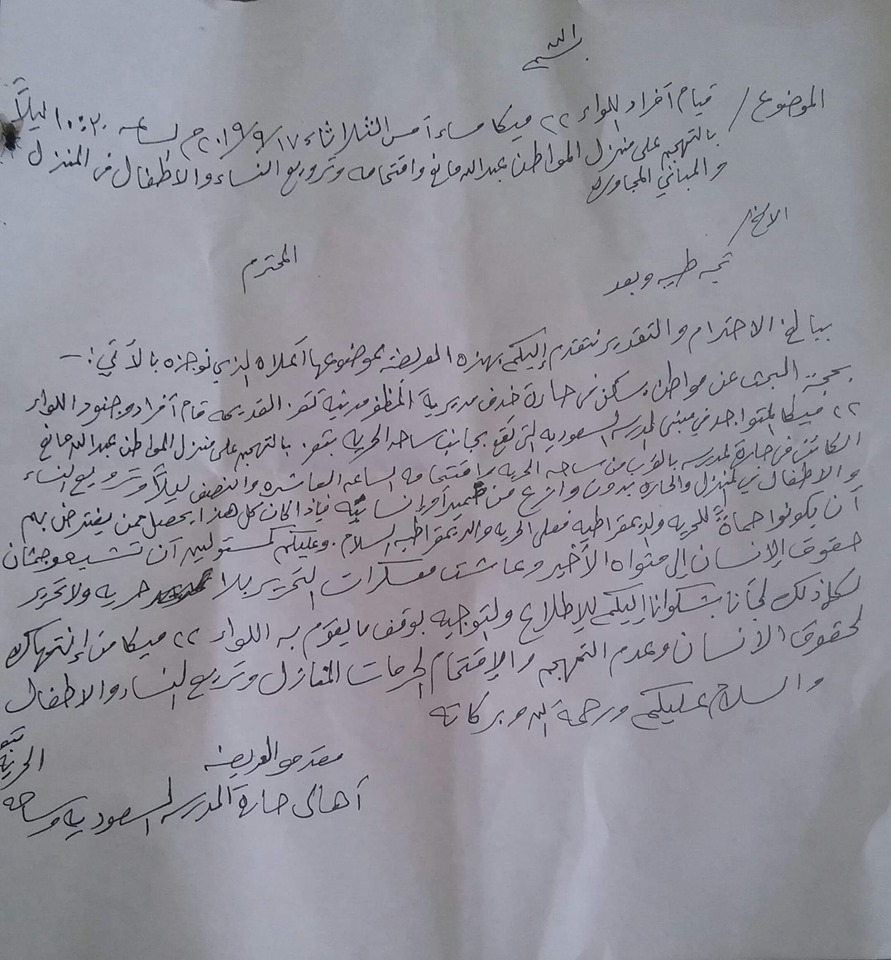 بسم الله
الموضوع / قيام أفراد اللواء ٢٢ ميكا مساء أمس الثلاثاء ٢٠١٩/٩/١٧م الساعه ١٠:٣٠ ليلاً
بالتهجم على منزل المواطن عبدالله مانع واقتحامه وترويع النساء والاطفال في المنزل
والمباني المجاوره
الاخ /
المحترم
تحيه طيبه وبعد
ببالغ الاحترام والتقدير نتقدم إليكم بهذه العريضه بموضوعها أعلاه الذي نوجزه بالآتي :-
بحجة البحث عن مواطن يسكن في حارة خلف مديرية المظفر مدينة تعز القديمه قام أفراد وجنود اللواء
٢٢ ميكا المتواجد في مبنى المدرسه السعوديه التي تقع بجانب ساحه الحريه بتعز بالتهجم على منزل المواطن عبدالله مانع
الكائن في حارة المدرسه بالقرب من ساحه الحريه واقتحامه الساعه العاشره والنصف ليلاً وترويع النساء
والاطفال في المنزل والحاره بدون وازع من ضمير أو إنسانيه فإذا كان كل هذا يحصل ممن يفترض بهم
أن يكونوا حماة للحريه والديمقراطيه فعلى الحريه والديمقراطيه السلام. وعليكم كمسئولين أن تشيعو جثمان
حقوق الإنسان إلى مثواه الأخير وعاشت معسكرات التحرير بلا حريه ولا تحرير
لكل ذلك لجأنا بشكوانا إليكم للإطلاع والتوجيه بوقف ما يقوم به اللواء ٢٢ ميكا من إنتهاك
لحقوق الانسان وعدم التهجم والإقتحام لحرمات المنازل وترويع النساء والاطفال
والسلام عليكم ورحمة الله وبركاته
مقدمو العريضه
أهالي حارة المدرسه السعوديه وساحه
الحريه